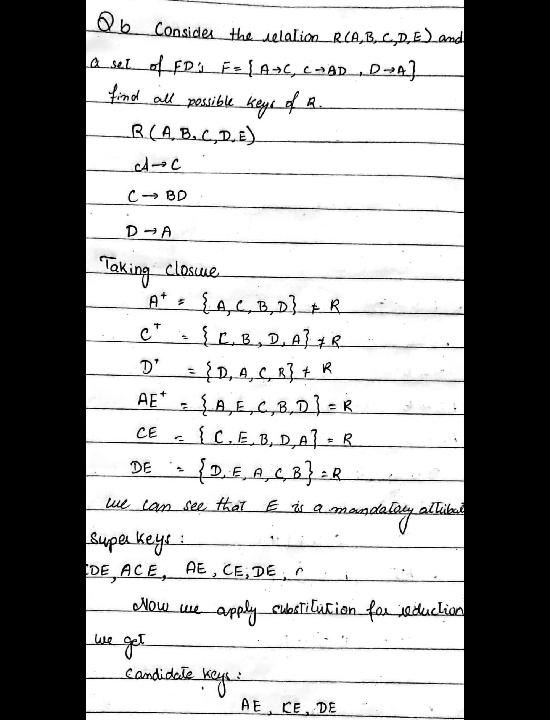 Q6 Consider the relation R(A,B,C,D,E) and
a set of FD's F = { A→C, C→BD , D→A }
find all possible keys of R.
R ( A, B, C, D, E)
A → C
C → BD
D → A
Taking closure
A⁺ = { A, C, B, D } ≠ R
C⁺ = { C, B, D, A } ≠ R
D⁺ = { D, A, C, B } ≠ R
AE⁺ = { A, E, C, B, D } = R
CE = { C, E, B, D, A } = R
DE = { D, E, A, C, B } = R
we can see that E is a mandatory attribut
Super keys :
CDE, ACE, AE, CE, DE,
Now we apply substitution for reduction
we get
Candidate keys :
AE, CE, DE